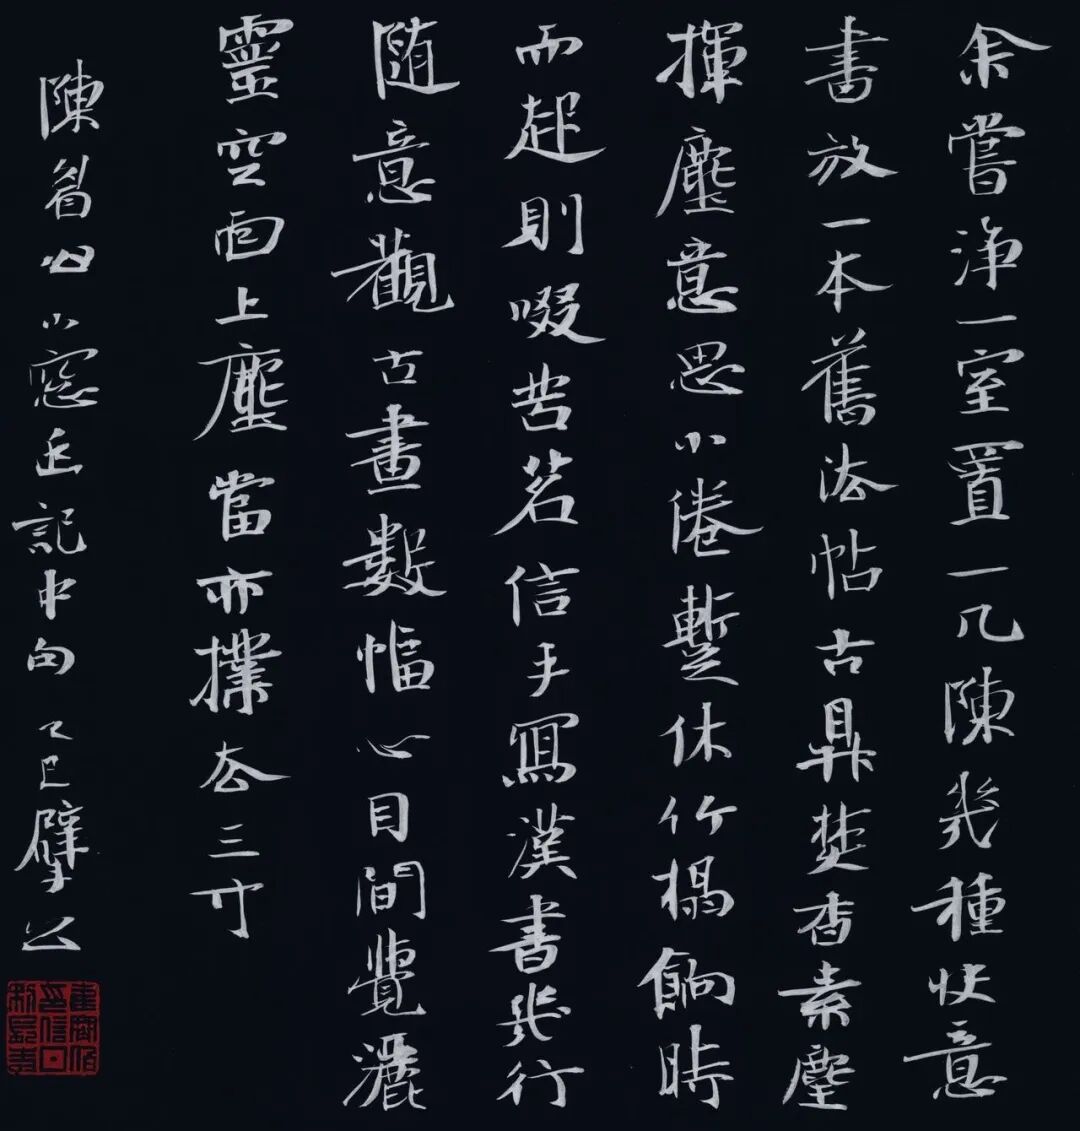 余嘗淨一室置一几陳幾種快意
書放一本舊法帖古鼎焚香素麈
揮塵意思小倦暫休竹榻餉時
而起則啜苦茗信手寫漢書幾行
隨意觀古畫數幅心目間覺灑
靈空面上塵當亦撲去三寸
陳眉公小窓幽記中句 乙巳擘公